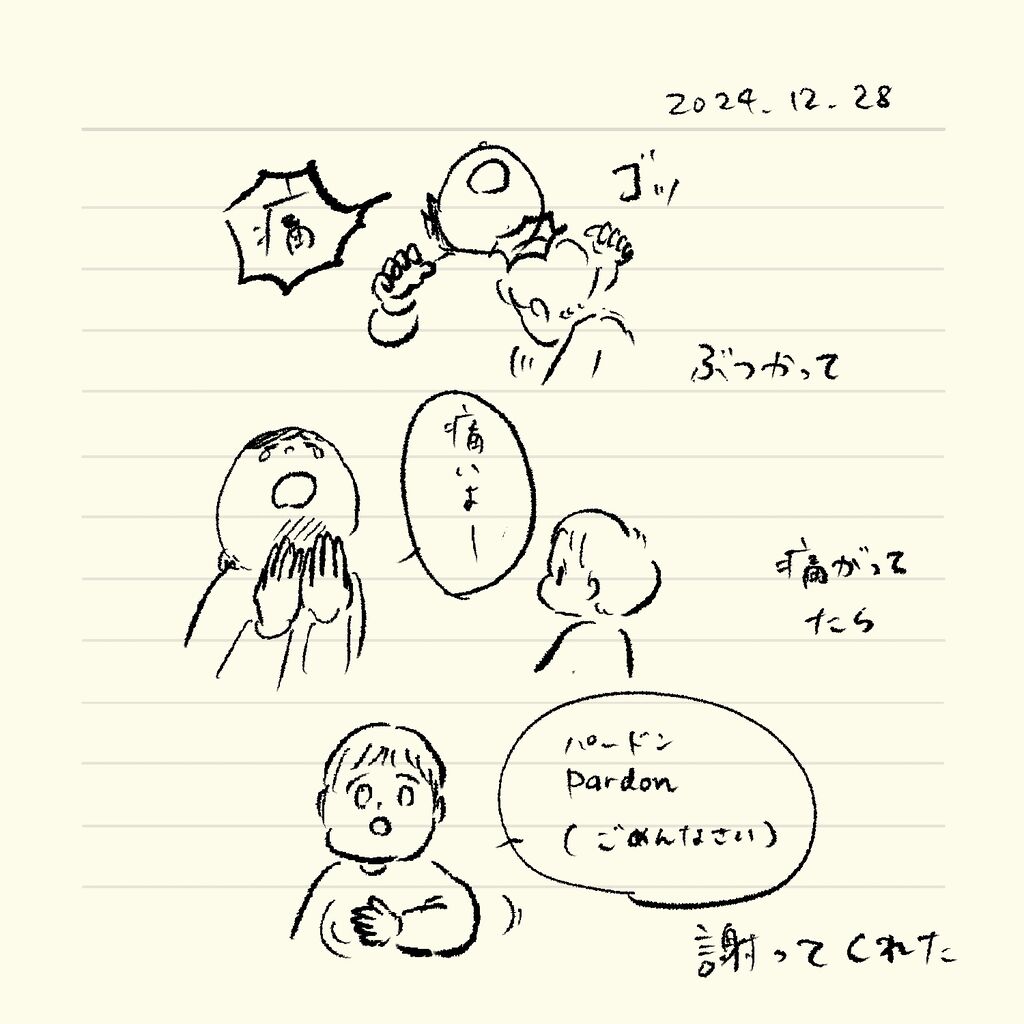 2024.12.28
痛
ゴッ
ぶつかって
痛いよー
痛がって
たら
パードン
pardon
(ごめんなさい)
謝ってくれた